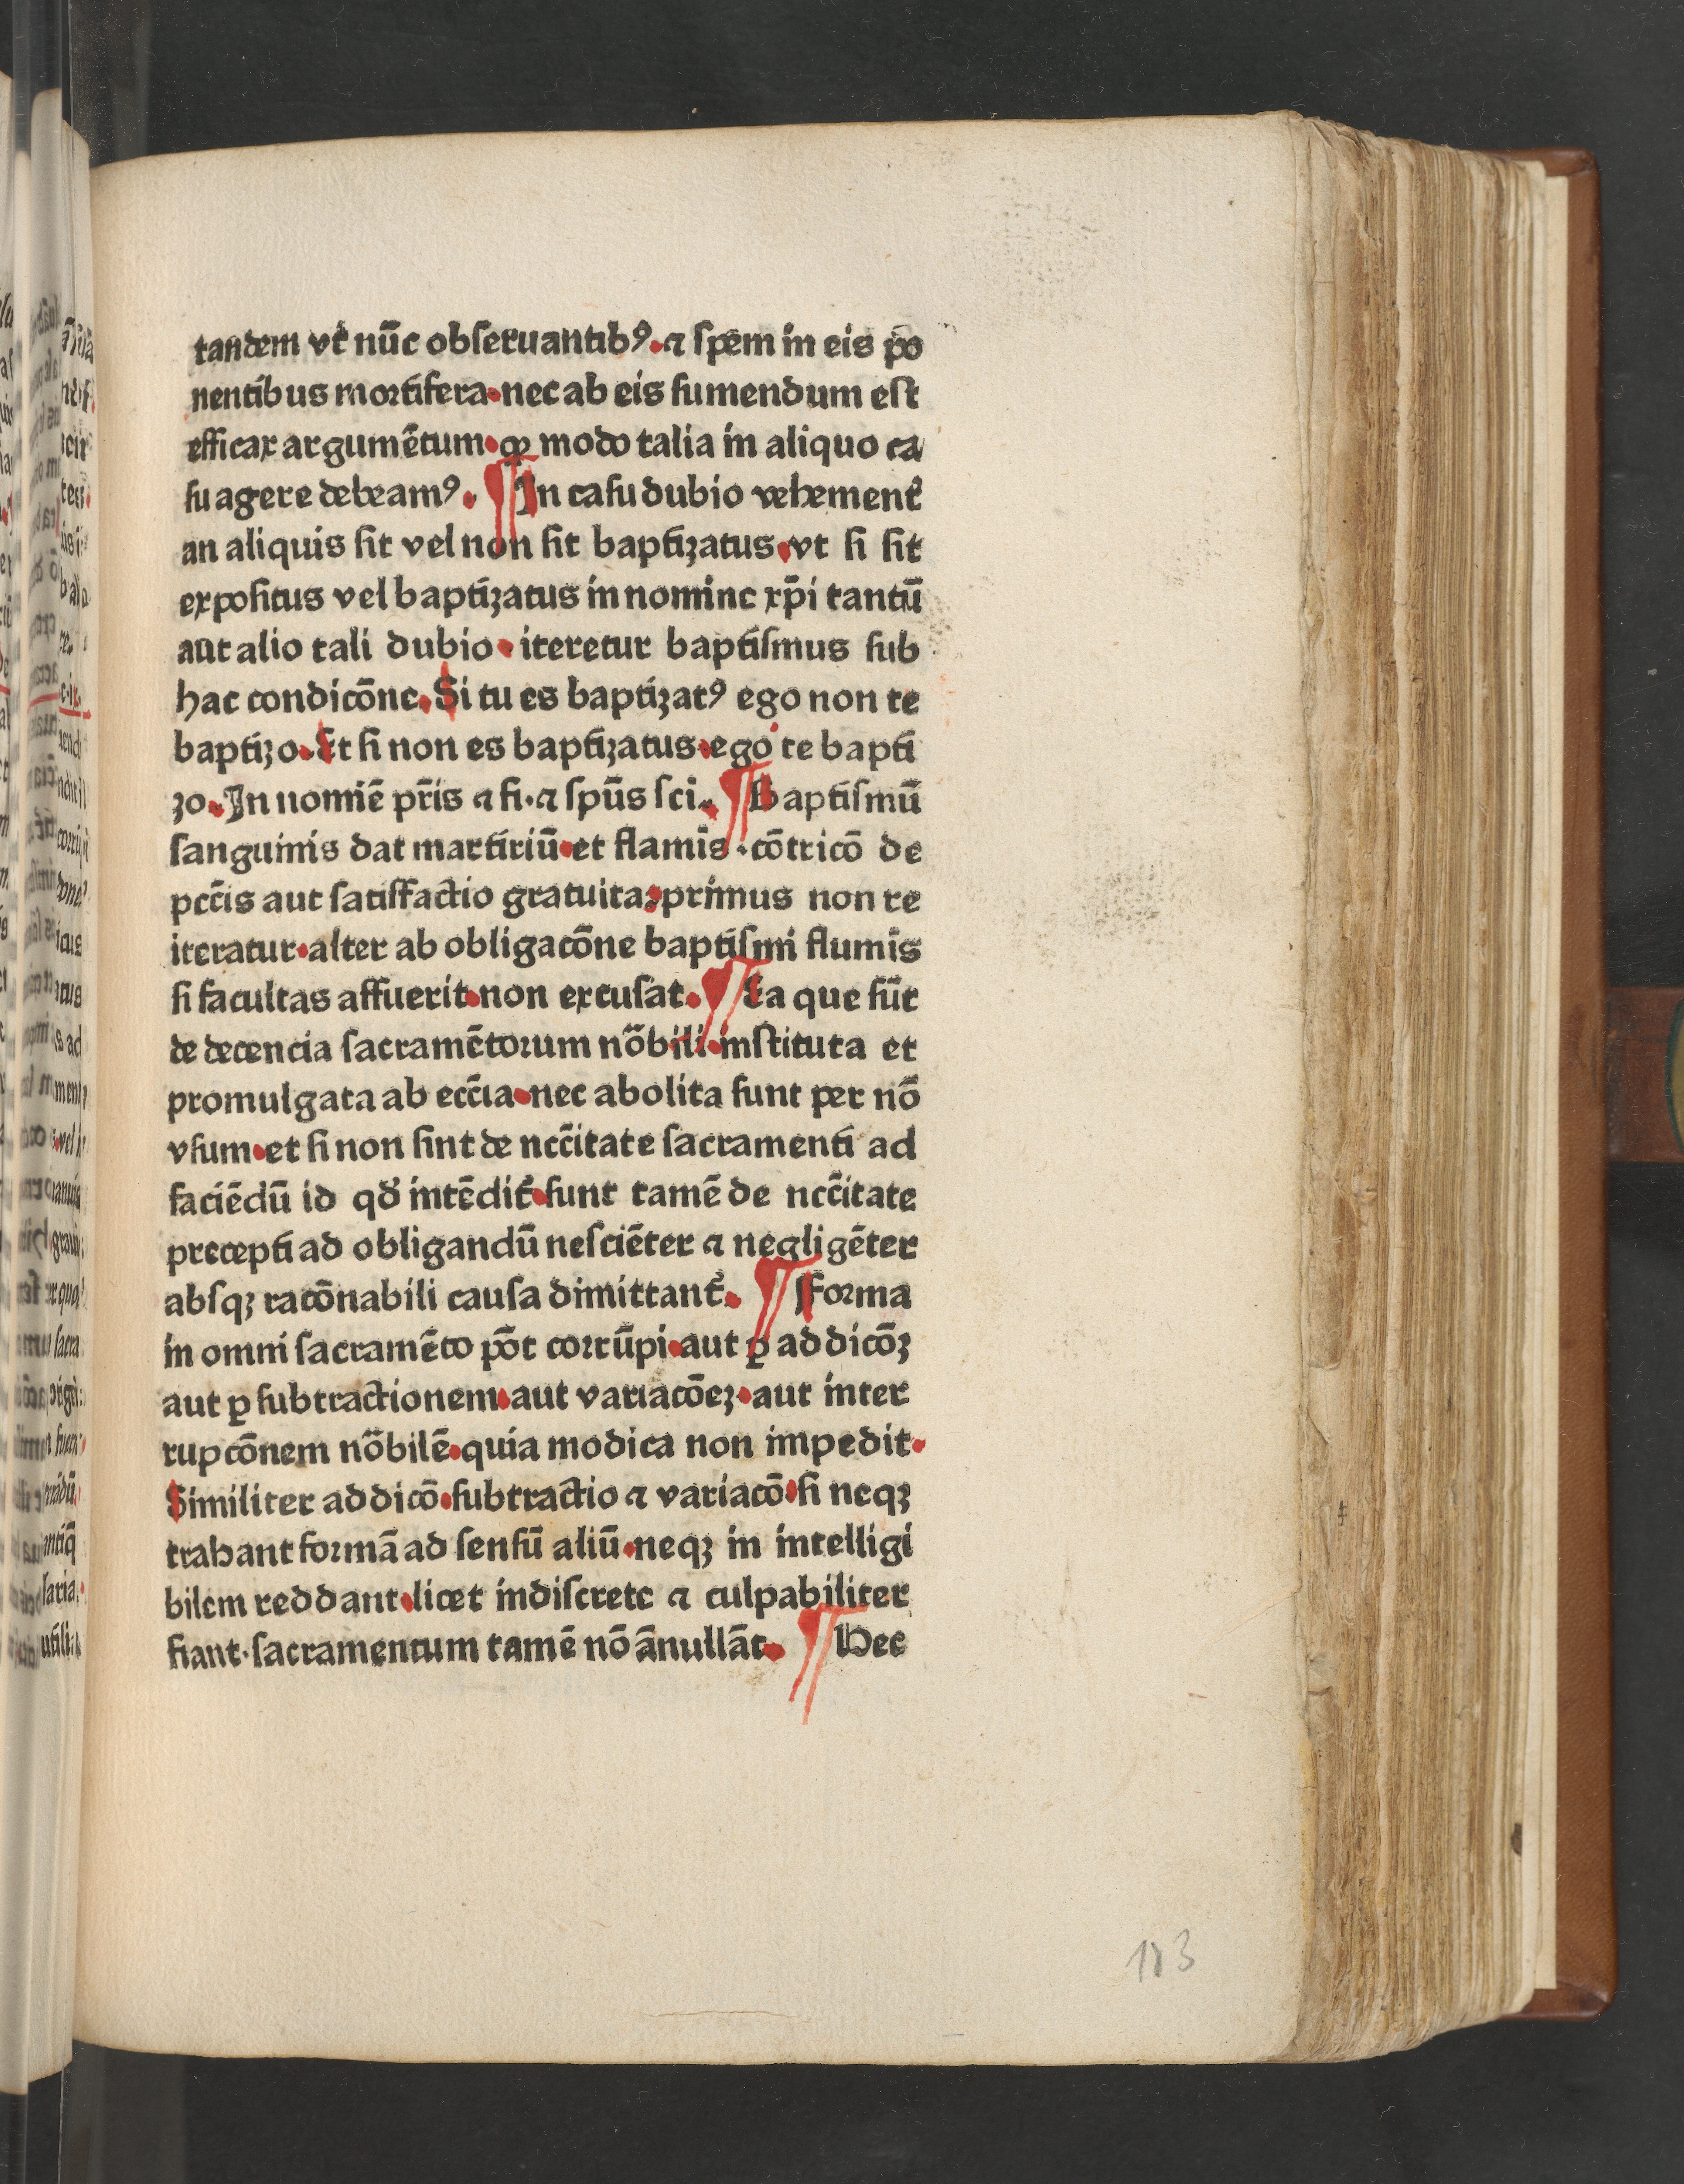 tandem vt̄ nūc obſeruantibꝰ. ⁊ ſpem in eis po
nentibus mortifera. nec ab eis ſumendum eſt
efficax argumētum. ꝙ modo talia in aliquo ca
ſu agere debeamꝰ. ¶ In caſu dubio vehement̄
an aliquis ſit vel non ſit baptizatus. vt ſi ſit
expoſitus vel baptizatus in nomine xp̄i tantū
aut alio tali dubio. iteretur baptiſmus ſub
hac condicōne. Si tu es baptizatꝰ ego non te
baptizo. Et ſi non es baptizatus. ego te bapti
zo. In nomiē pr̄is ⁊ fi. ⁊ ſpūs ſci. ¶ Baptiſmū
ſanguinis dat martiriū. et flamīs. cōtricō de
pcc̄is aut ſatiſfactio gratuita. primus non re
iteratur. alter ab obligacōne baptiſmi flumīs
ſi facultas affuerit. non excuſat. ¶ Ea que ſūt
de decencia ſacramētorum nōbili. inſtituta et
promulgata ab ecc̄ia. nec abolita ſunt per nō
vſum. et ſi non ſint de ncc̄itate ſacramenti ad
faciēdū id qd̄ intēdit̄. ſunt tamē de ncc̄itate
precepti ad obligandū neſciēter ⁊ negligēter
abſqꝫ racōnabili cauſa dimittant̄. ¶ Forma
in omni ſacramēto pōt corrūpi. aut ꝑ addicōꝫ
aut ꝑ ſubtractionem. aut variacōeꝫ. aut inter
rupcōnem nōbilē. quia modica non impedit.
Similiter addicō. ſubtractio ⁊ variacō. ſi neqꝫ
trahant formā ad ſenſū aliū. neqꝫ in intelligi
bilem reddant. licet indiſcrete ⁊ culpabiliter
fiant. ſacramentum tamē nō ānullāt. ¶ Hec
113